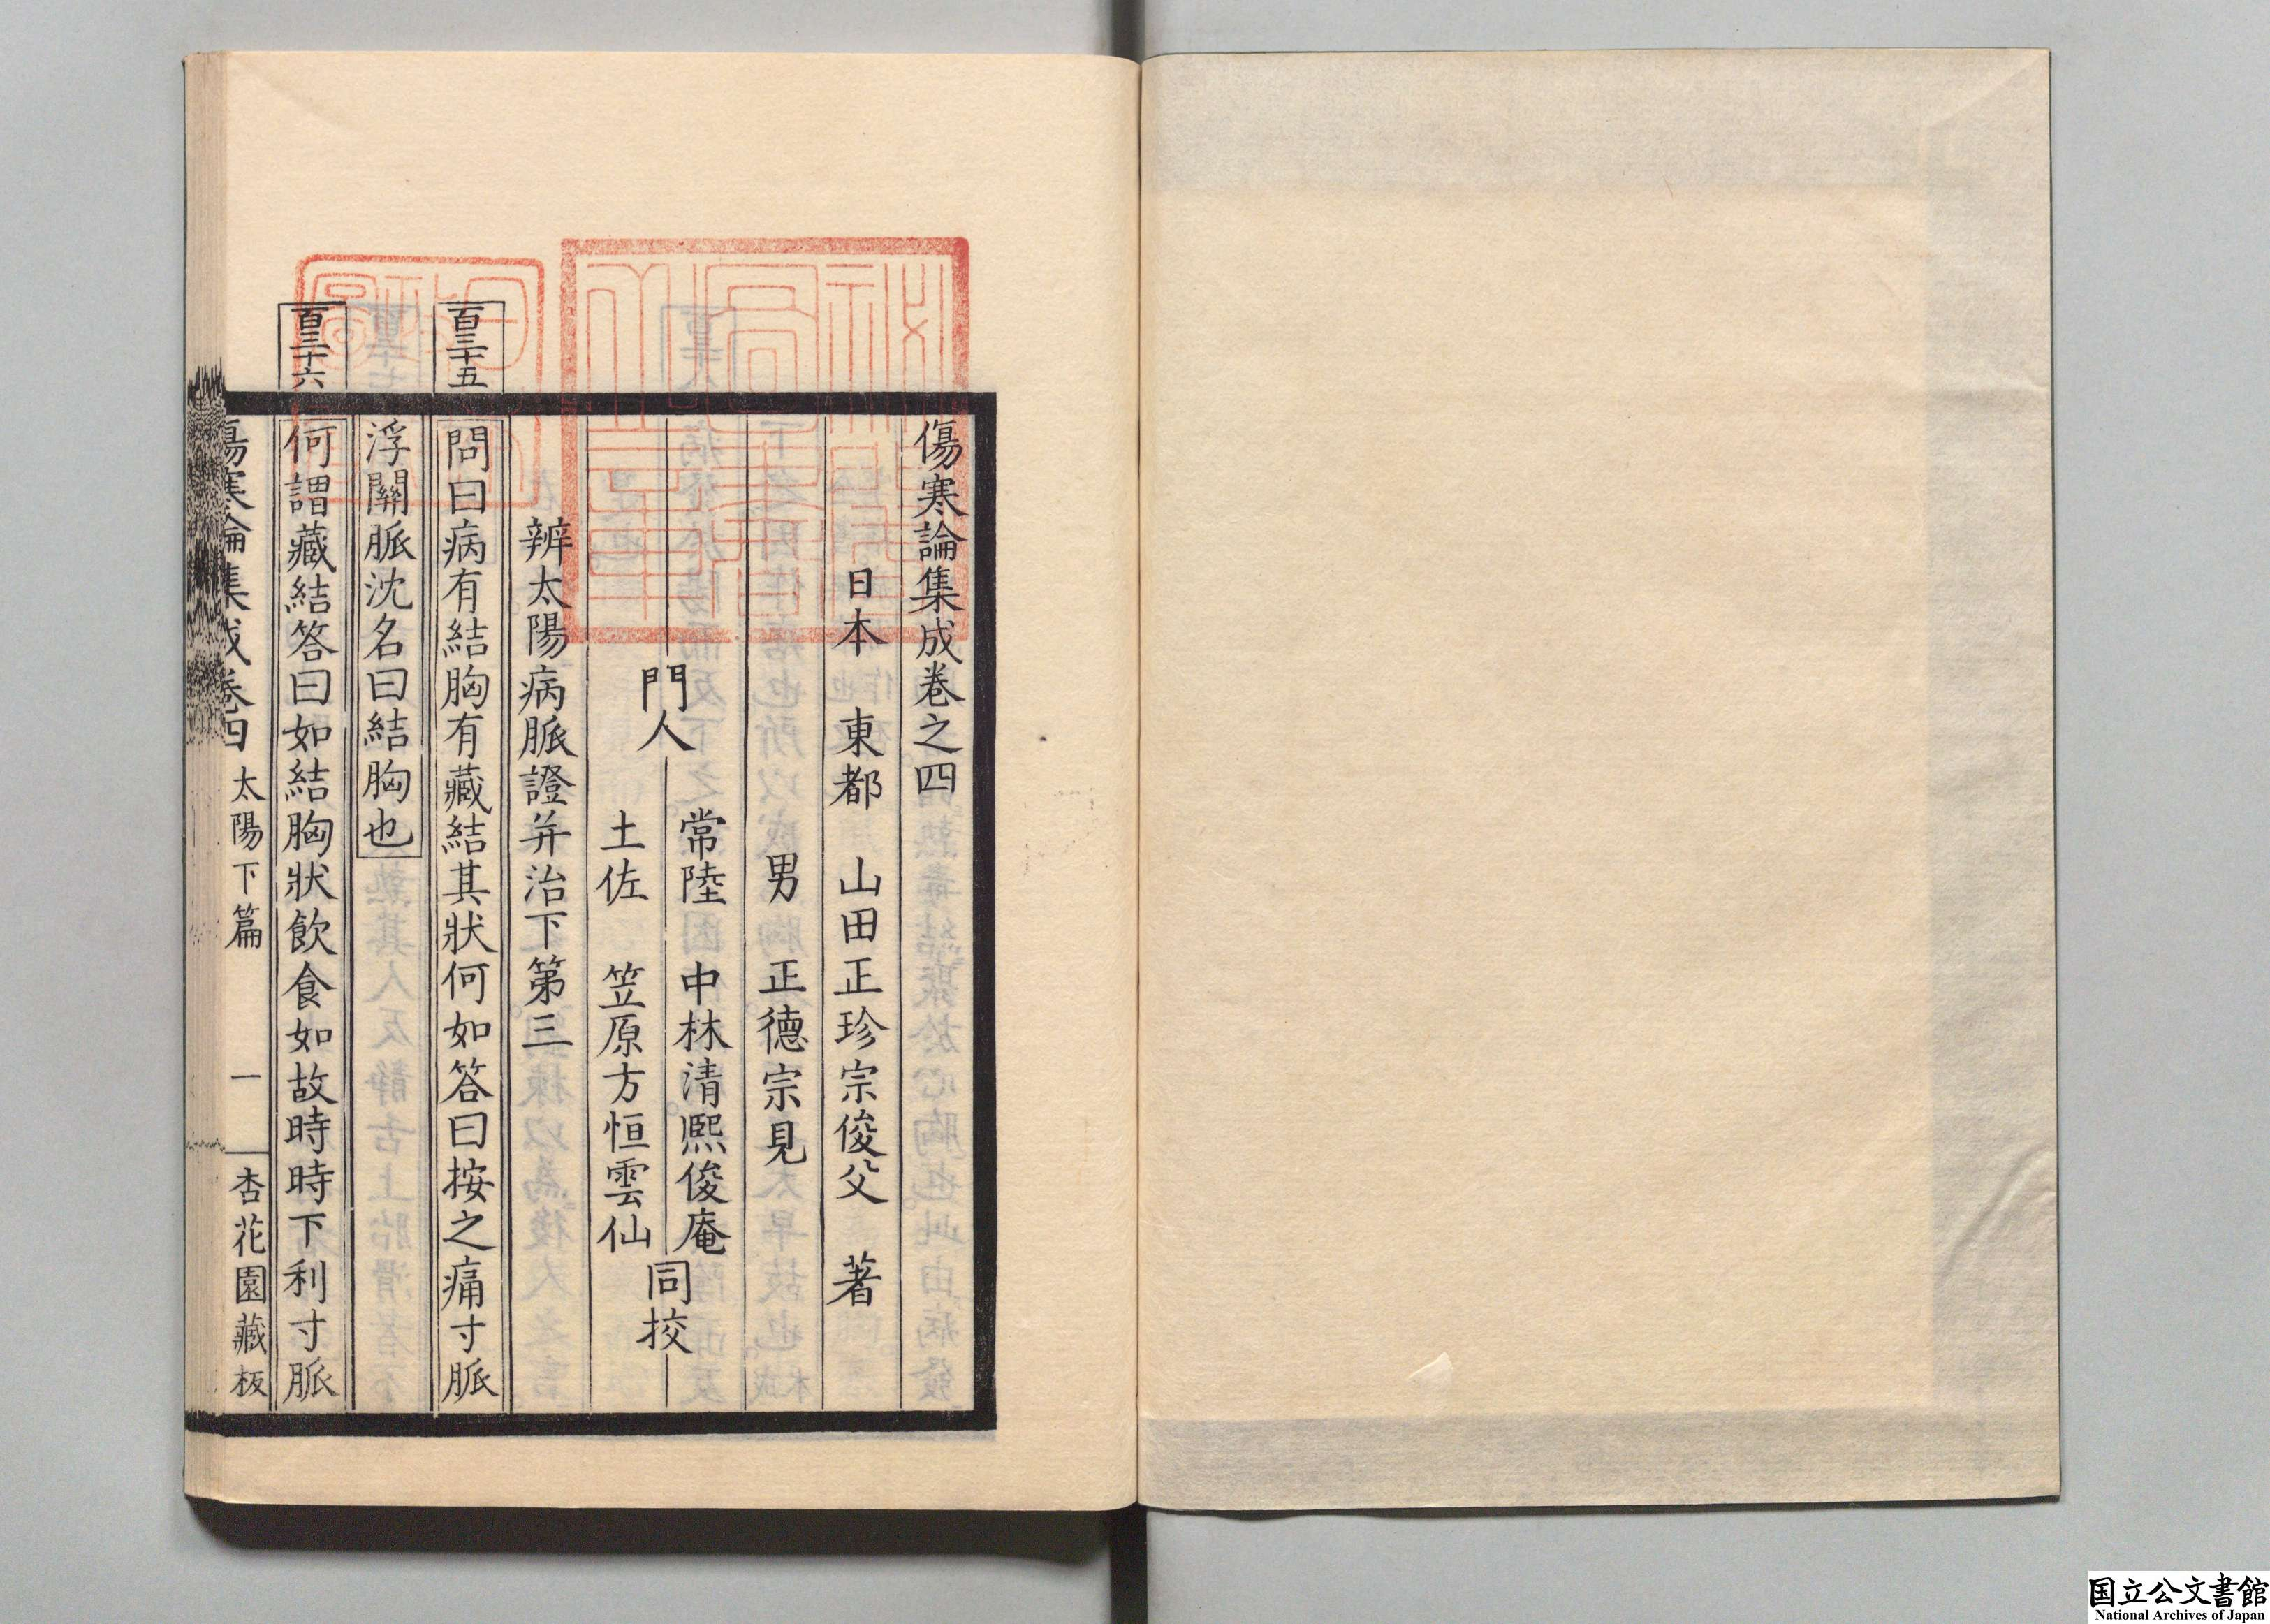 傷寒論集成卷之四
日本 東都 山田正珍宗俊父 著
男 正德宗見
門人
常陸 中林清熙俊庵
土佐 笠原方恒雲仙
同挍
辨太陽病脈證并治下第三
百三十五
問曰病有結胸有藏結其狀何如答曰按之痛寸脈
浮關脈沈名曰結胸也
百三十六
何謂藏結答曰如結胸狀飲食如故時時下利寸脈
傷寒論集成卷四 太陽下篇 一 杏花園藏板
国立公文書館
National Archives of Japan